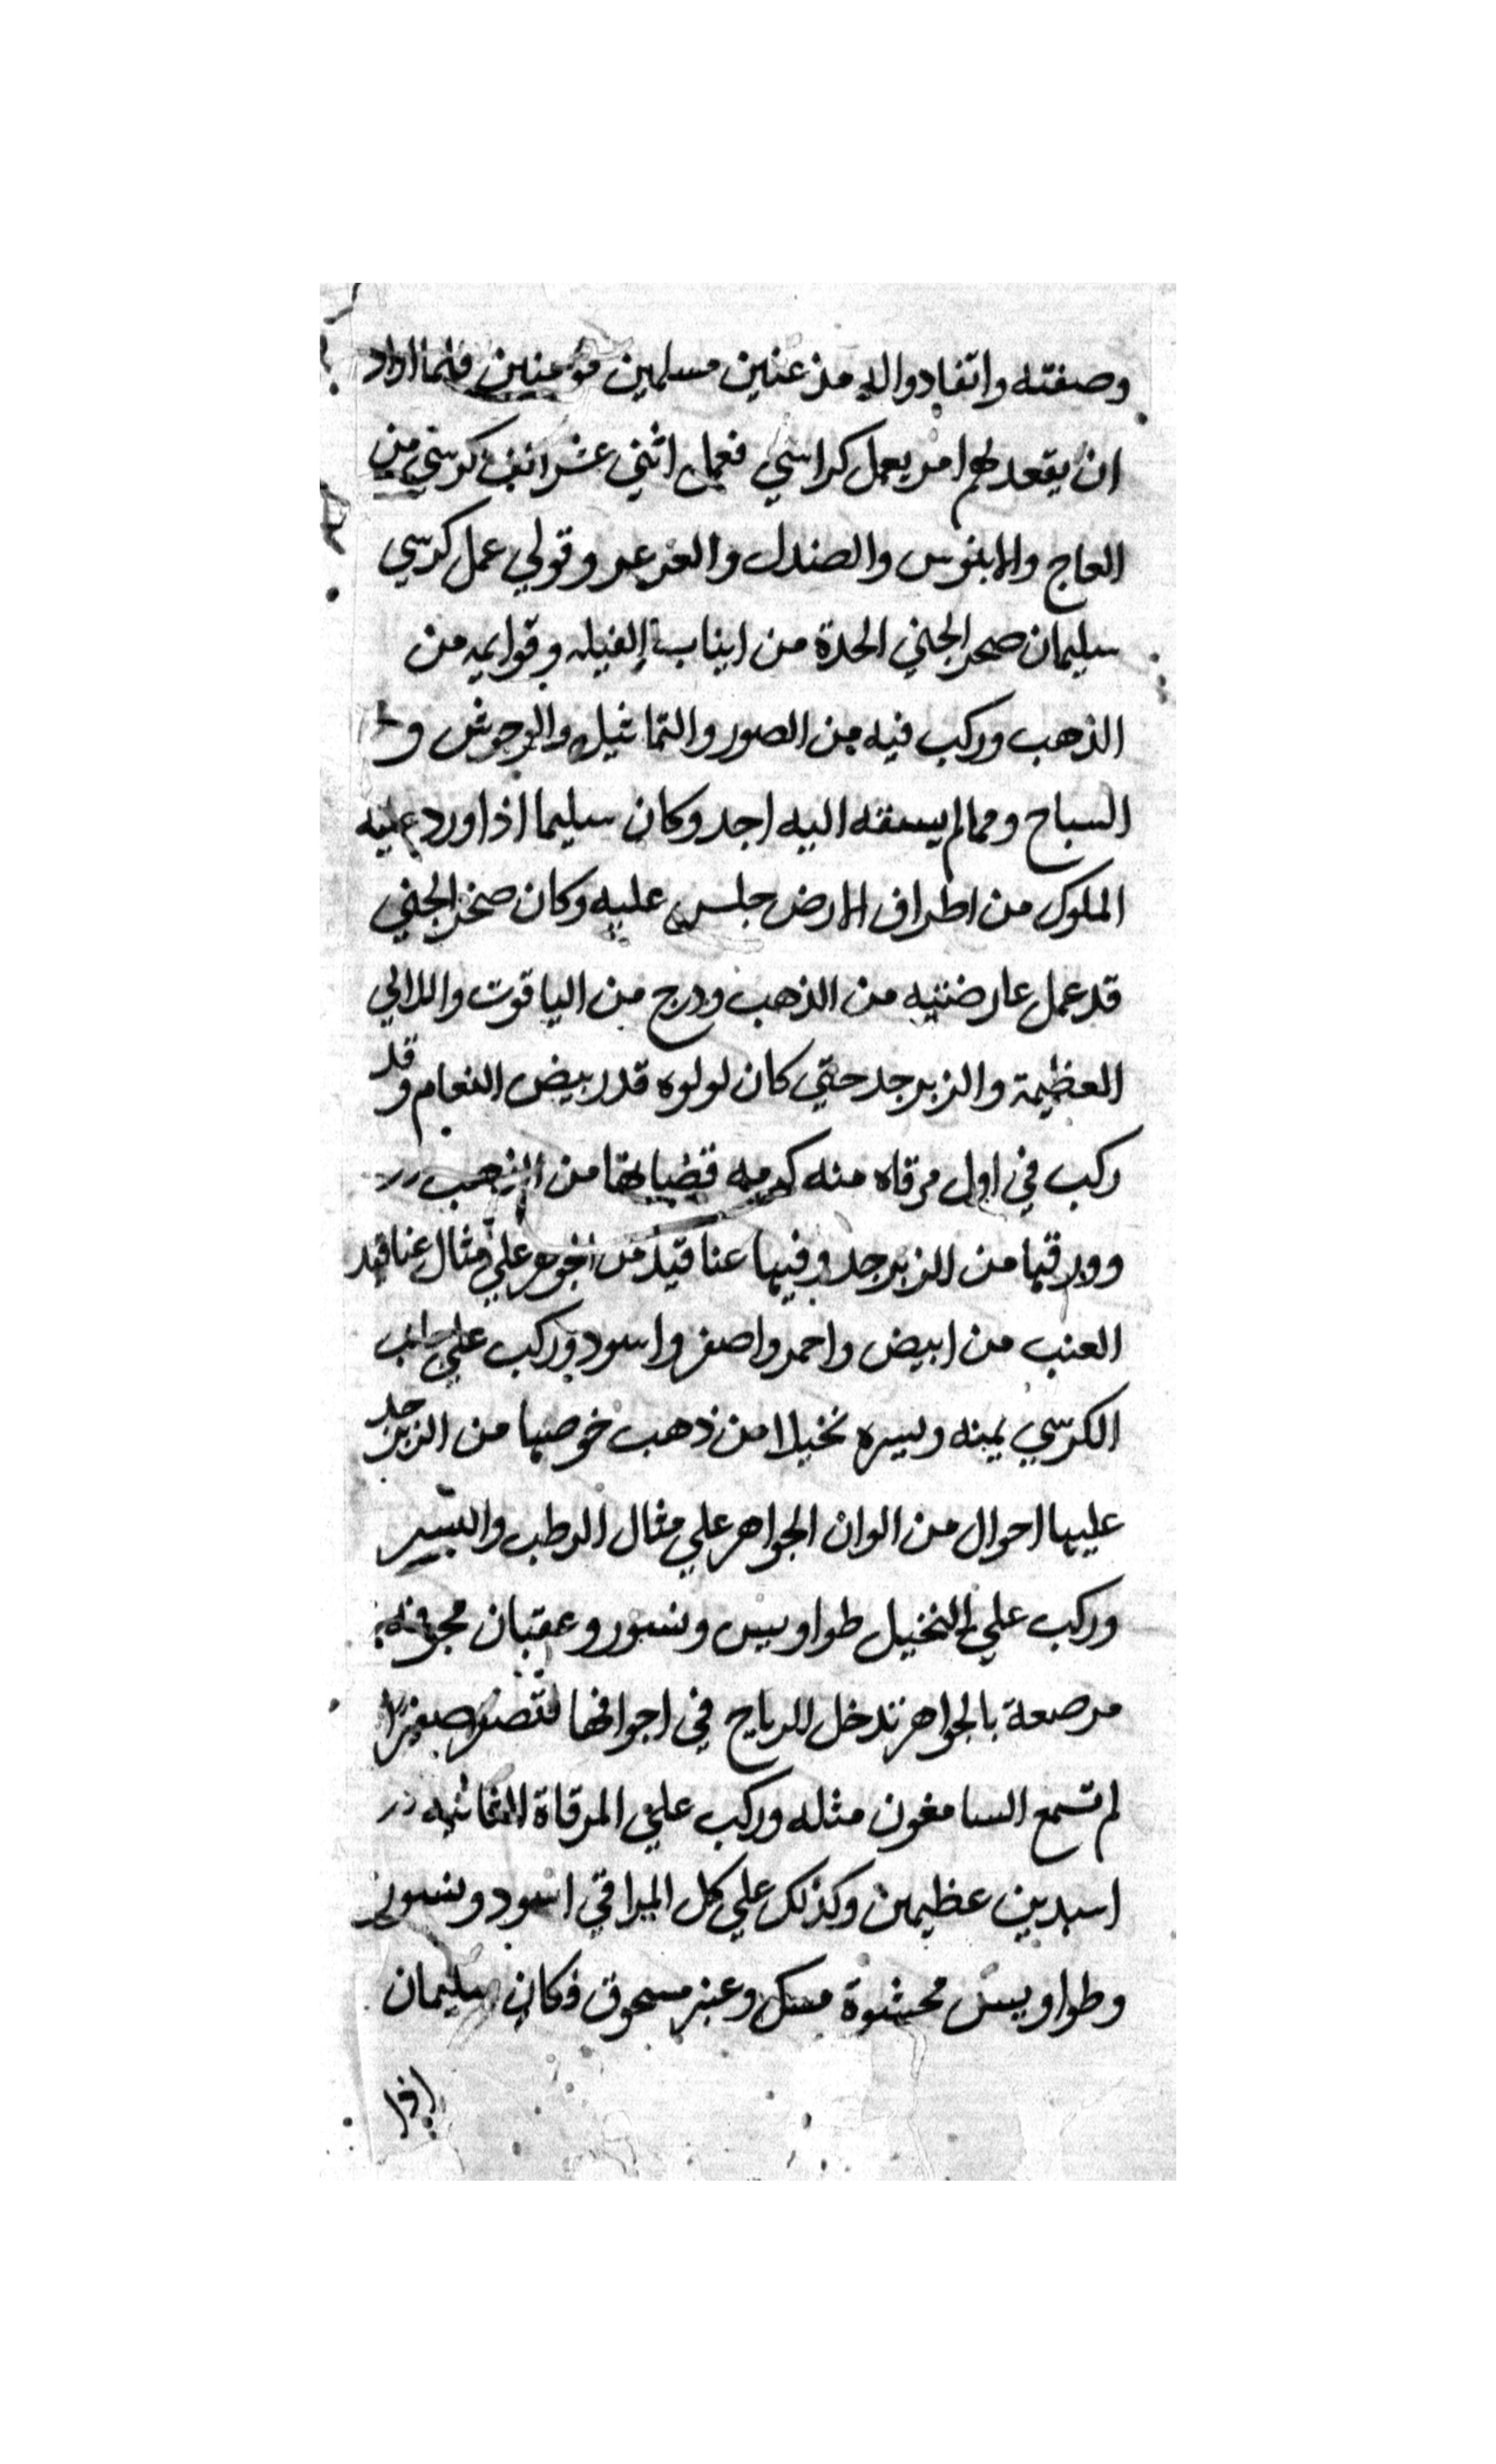 وصفته واتقادوا اليه مذعنين مسلمين مؤمنين فلما اراد
ان يقعد لهم امر يعمل كراسي فعمل اثني عشر الف كرسي من
العاج والابنوس والصندل والعرعر وتولي عمل كرسي
سليمان صخر الجني الحدة من انياب الفيله وقوايمه من
الذهب وركب فيه من الصور والتماثيل والوحوش و
السباح ومما لم يسبقه اليه احد وكان سليما اذا ورد عليه
الملوك من اطراف الارض جلس عليه وكان صخر الجني
قد عمل عارضتيه من الذهب ودرج من الياقوت واللالي
العظيمة والزبرجد حتي كان لولوه قدر بيض النعام وقد
ركب في اول مرقاه منه كرمه قضبانها من الذهب
وورقها من الزبرجد وفيها عناقيد من الجوهر علي مثال عناقيد
العنب من ابيض واحمر واصفر واسود وركب علي جانب
الكرسي يمينه ويسره نخيلا من ذهب خوصها من الزبرجد
عليها احوال من الوان الجواهر علي مثال الرطب والبسر
وركب علي النخيل طواويس ونسور وعقبان مجوفه
مرصعة بالجواهر تدخل الرياح في اجوافها فتصفر صفيرا
لم تسمع السامعون مثله وركب علي المرقاة الثانيه
اسدين عظيمين وكذلك علي كل المراقي اسود ونسور
وطواويس محشوة مسك وعنبر مسحوق فكان سليمان
اذا